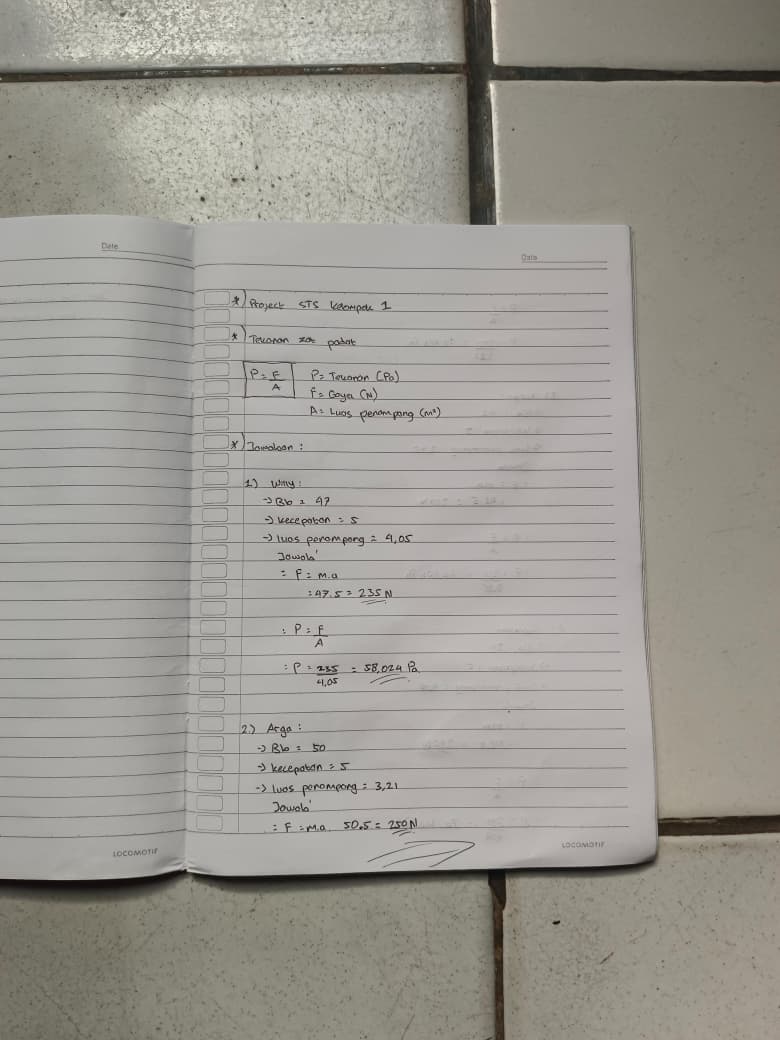 Date
Date
*) Project STS Kelompok 1
*) Tekanan zat padat
P = F/A
P = Tekanan (Pa)
F = Gaya (N)
A = Luas penampang (m²)
*) Jawaban :
1.) Willy :
-> Bb = 47
-> kecepatan = 5
-> luas penampang = 4,05
Jawab'
= F = m.a
: 47.5 = 235 N
: P = F/A
: P = 235/4,05 = 58,024 Pa
2.) Arga :
-> Bb = 50
-> kecepatan = 5
-> luas penampang = 3,21
Jawab'
: F = m.a 50.5 = 250 N
LOCOMOTIF
LOCOMOTIF